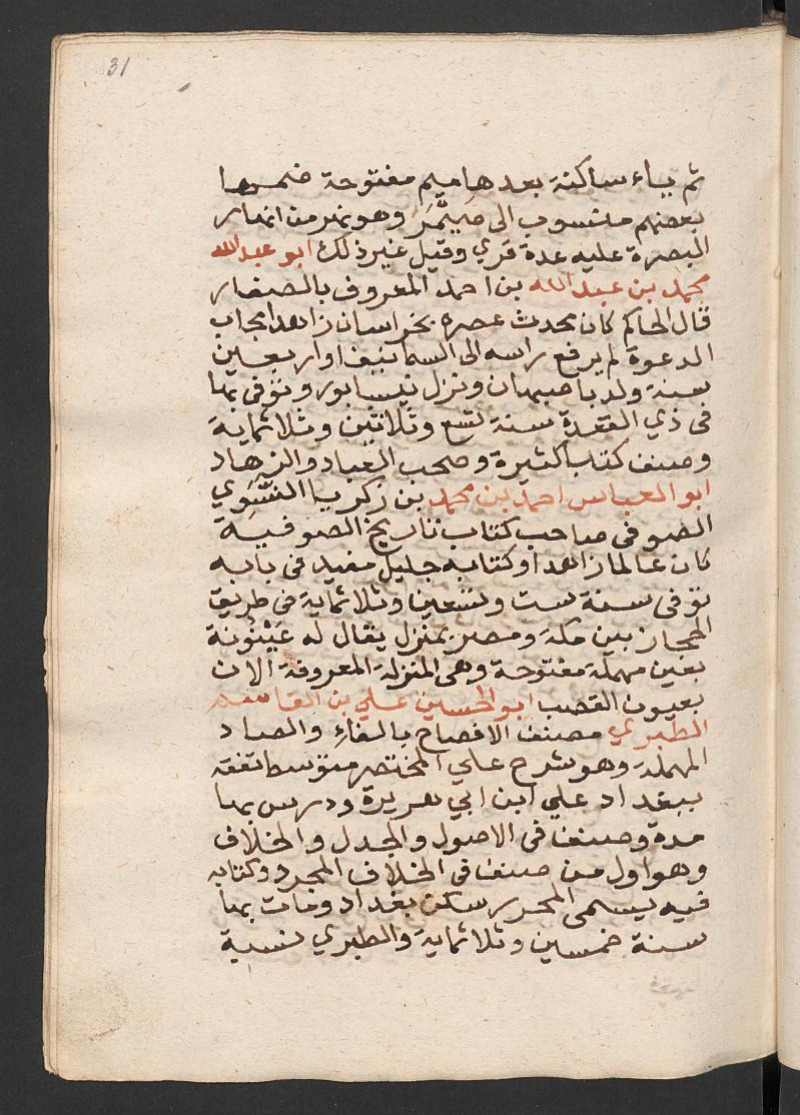 31
ثم بياء ساكنة بعدها ميم مفتوحة ضمها
بعضهم منسوب الى صَيْمَرَ وهو نهر من انهار
البصرة عليه عدة قري وقيل غير ذلك ابو عبد الله
محمد بن عبد الله بن احمد المعروف بالصفار
قال الحاكم كان محدث عصره بخراسان زاهدا مجاب
الدعوة لم يرفع راسه الى السما نيفا واربعين
سنة ولد باصبهان ونزل نيسابور وتوفى بها
فى ذي القعدة سنة تسع وثلاثين وثلاثماية
وصنف كتبا كثيرة وصحب العباد والزهاد
ابو العباس احمد بن محمد بن زكريا النَّسَوي
الصوفى صاحب كتاب تاريخ الصوفية
كان عالما زاهدا وكتابه جليل مفيد فى بابه
توفى سنة ست وتسعين وثلاثماية فى طريق
الحجاز بين مكة ومصر بمنزل يقال له عَيْنُونة
بعين مهملة مفتوحة وهى المنزلة المعروفة الان
بعيون القصب ابو الحسين علي بن القاسم
الطبري مصنف الافصاح بالفاء والصاد
المهملة وهو شرح علي المختصر متوسط تفقه
ببغداد علي ابن ابي هريرة ودرس بها
مدة وصنف فى الاصول والجدل والخلاف
وهو اول من صنف فى الخلاف المجرد وكتابه
فيه يسمى المحرر سكن بغداد ومات بها
سنة خمسين وثلاثماية والطبري نسبة